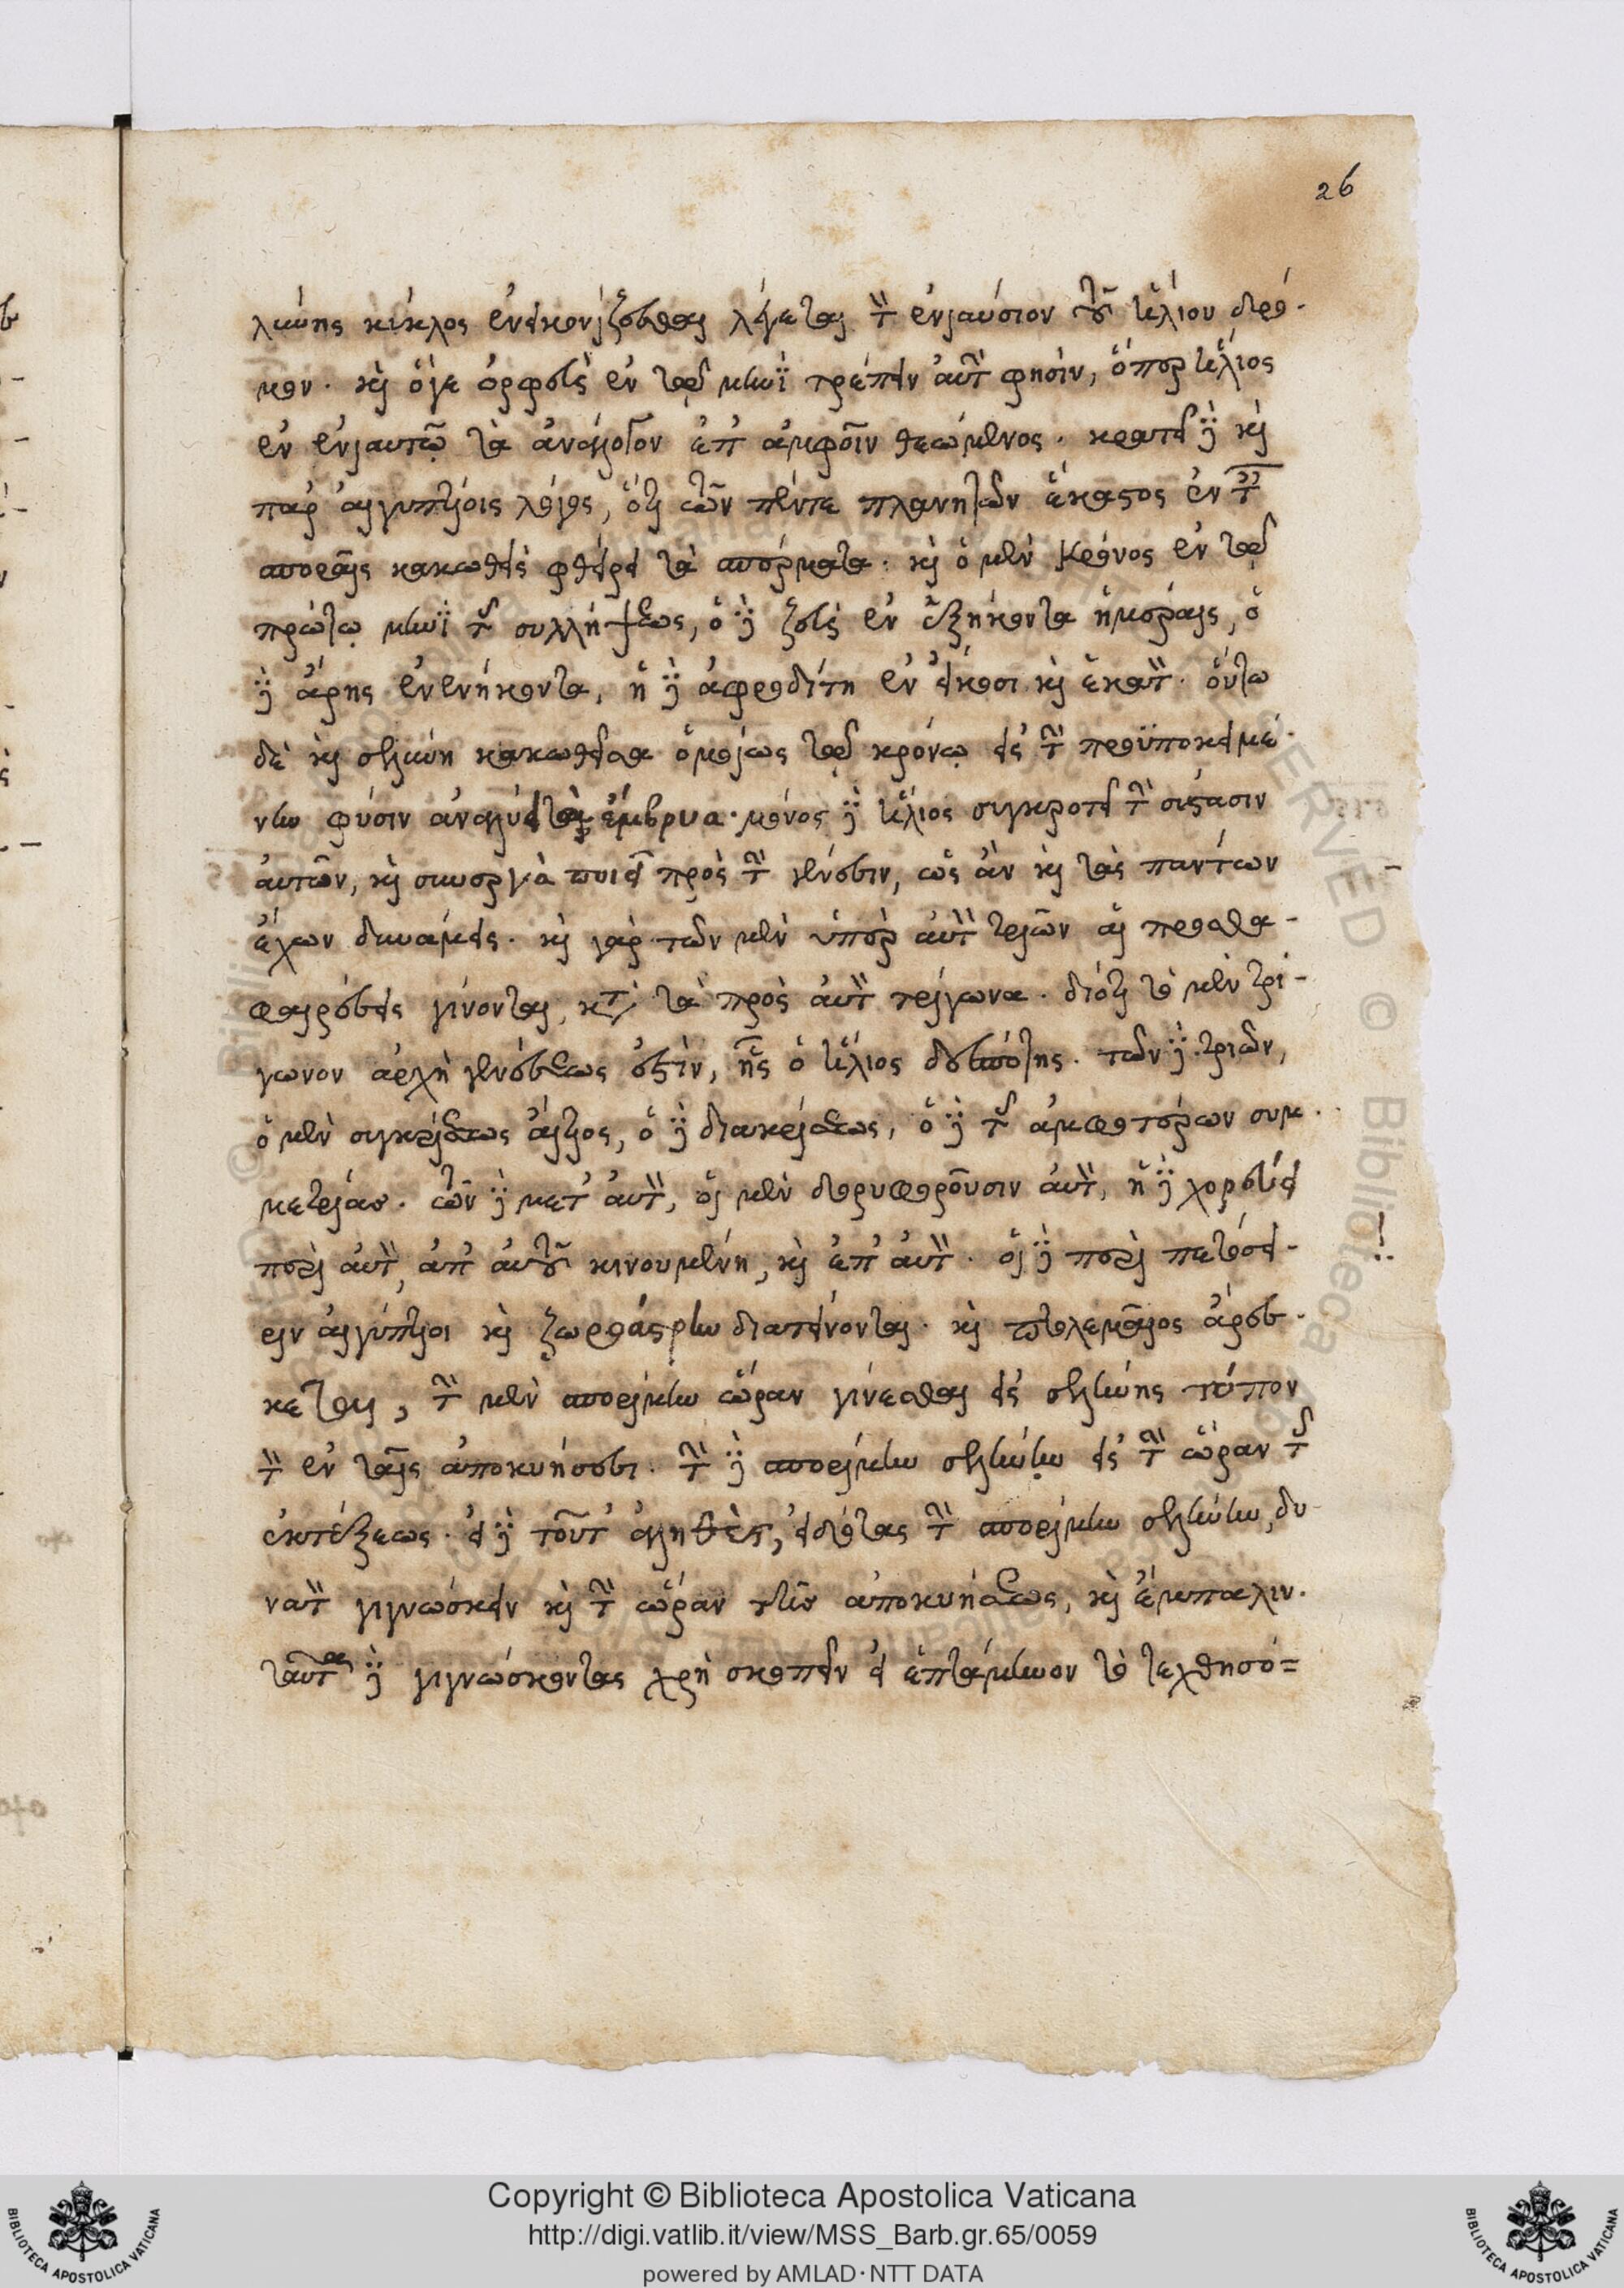 26
λήνης κύκλος ἐνεικονίζεσθαι λέγεται τὸν ἐνιαύσιον τοῦ ἡλίου δρό-
μον. καὶ ὅγε ὀρφεὺς ἐν τῷ μηνὶ τρέπειν αὐτὴν φησὶν, ὅπερ ἥλιος
ἐν ἐνιαυτῷ τὰ ἀνάλογον ἐπ' ἀμφοῖν θεώμενος. κρατεῖ δὲ καὶ
παρ' αἰγυπτίοις λόγος, ὅτι τῶν πέντε πλανητῶν ἕκαστος ἐν ταῖς
σποραῖς κακωθεὶς φθείρει τὰ σπέρματα. καὶ ὁ μὲν κρόνος ἐν τῷ
πρώτῳ μηνὶ τῆς συλλήψεως, ὁ δὲ ζεὺς ἐν ἑξήκοντα ἡμέραις, ὁ
δὲ ἄρης ἐνενήκοντα, ἡ δὲ ἀφροδίτη ἐν εἴκοσι καὶ ἑκατὸν. οὕτω
δὲ καὶ σελήνη κακωθεῖσα ὁμοίως τῷ κρόνῳ εἰς τὴν προϋποκειμέ-
νην φύσιν ἀναλύει τὰ ἔμβρυα. μόνος δὲ ἥλιος συγκροτεῖ τὴν σύστασιν
αὐτῶν, καὶ συνεργὰ ποιεῖ πρὸς τὴν γένεσιν, ὡς ἂν καὶ τὰς πάντων
ἔχων δυνάμεις. καὶ γὰρ τῶν μὲν ὑπὲρ αὐτὸν τριῶν αἱ προσθα-
φαιρέσεις γίνονται, κατὰ τὰ πρὸς αὐτὸν τρίγωνα. διότι τὸ μὲν τρί-
γωνον ἀρχὴ γενέσεως ἐστὶν, ἧς ὁ ἥλιος δεσπότης. τῶν δὲ τριῶν,
ὁ μὲν συγκρίσεως αἴτιος, ὁ δὲ διακρίσεως, ὁ δὲ τῆς ἀμφοτέρων συμ-
μετρίας. τῶν δὲ μετ' αὐτὸν, οἱ μὲν δορυφοροῦσιν αὐτὸν, ἡ δὲ χορεύει
περὶ αὐτὸν, ἀπ' αὐτοῦ κινουμένη, καὶ ἐπ' αὐτὸν. οἱ δὲ περὶ πετόσει-
ριν αἰγύπτιοι καὶ ζωροάστρην διατείνονται. καὶ πτολεμαῖος ἀρέσ-
κεται, τὴν μὲν σπορίμην ὥραν γίνεσθαι εἰς σελήνης τόπον
τὸν ἐν ταῖς ἀποκυήσεσι. τὴν δὲ σπορίμην σελήνην εἰς τὴν ὥραν τῆς
ἐκτέξεως. εἰ δὲ τοῦτ' ἀληθὲς, εἰδότας τὴν σπορίμην σελήνην, δυ-
νατὸν γιγνώσκειν καὶ τὴν ὥραν τῆς ἀποκυήσεως, καὶ ἔμπαλιν.
ταῦτα δὲ γιγνώσκοντας χρὴ σκοπεῖν εἰ ἑπτάμηνον τὸ τεχθησό=
Copyright © Biblioteca Apostolica Vaticana
http://digi.vatlib.it/view/MSS_Barb.gr.65/0059
powered by AMLAD·NTT DATA
BIBLIOTECA APOSTOLICA VATICANA
BIBLIOTECA APOSTOLICA VATICANA